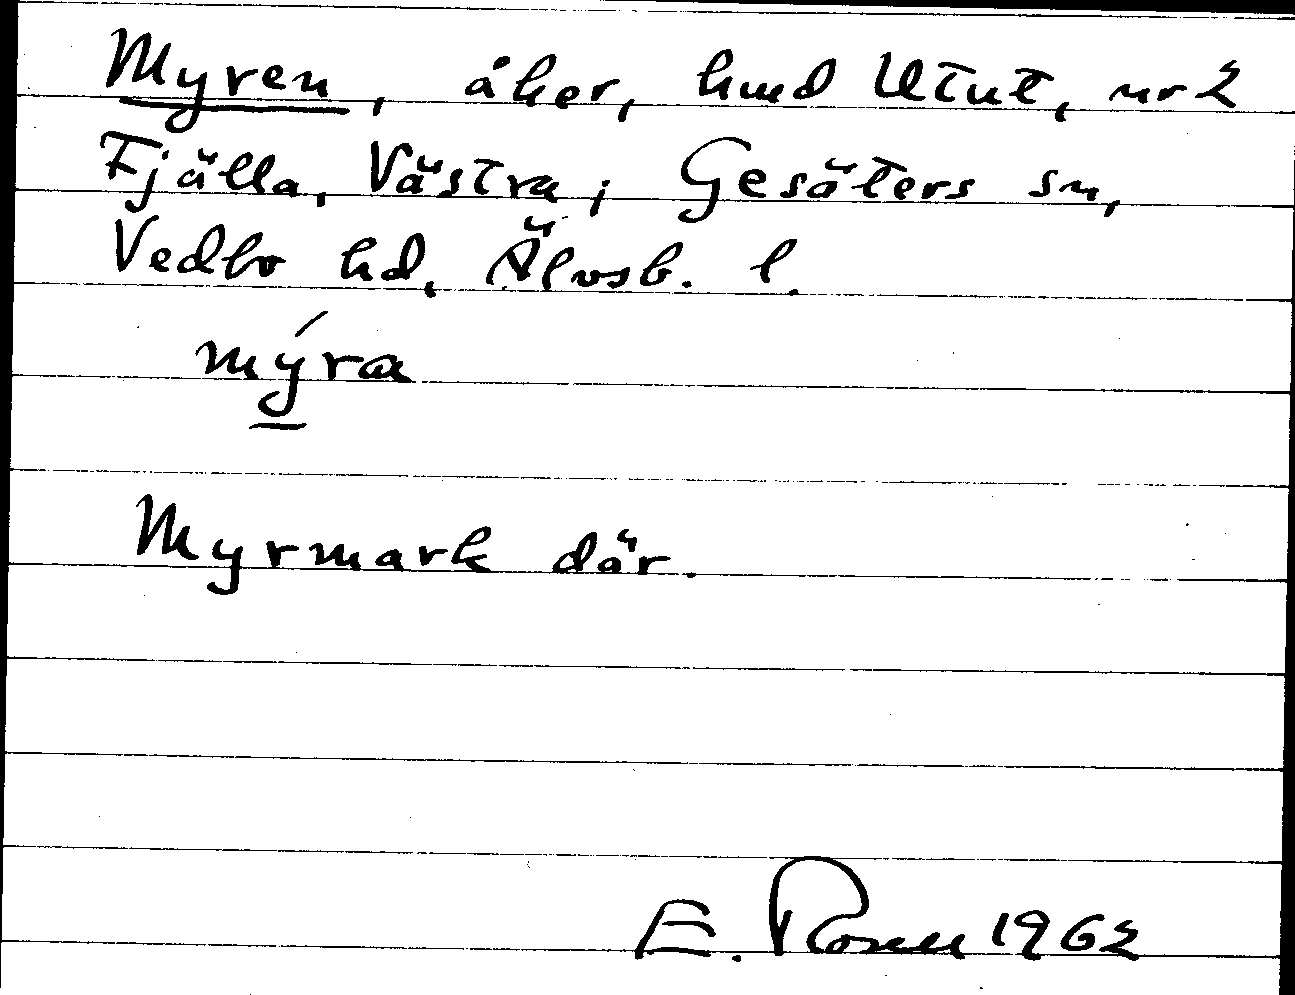 Myren, åker, hmd Utut, nr 2
Fjälla, Västra, Gesäters sn,
Vedbo hd, Älvsb. l.
mýra
Myrmark där.
E. Rosen 1962